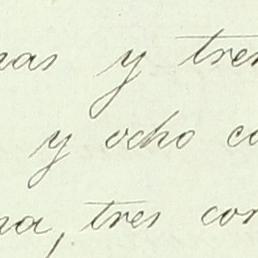 nas y tres
y ocho co
na, tres con